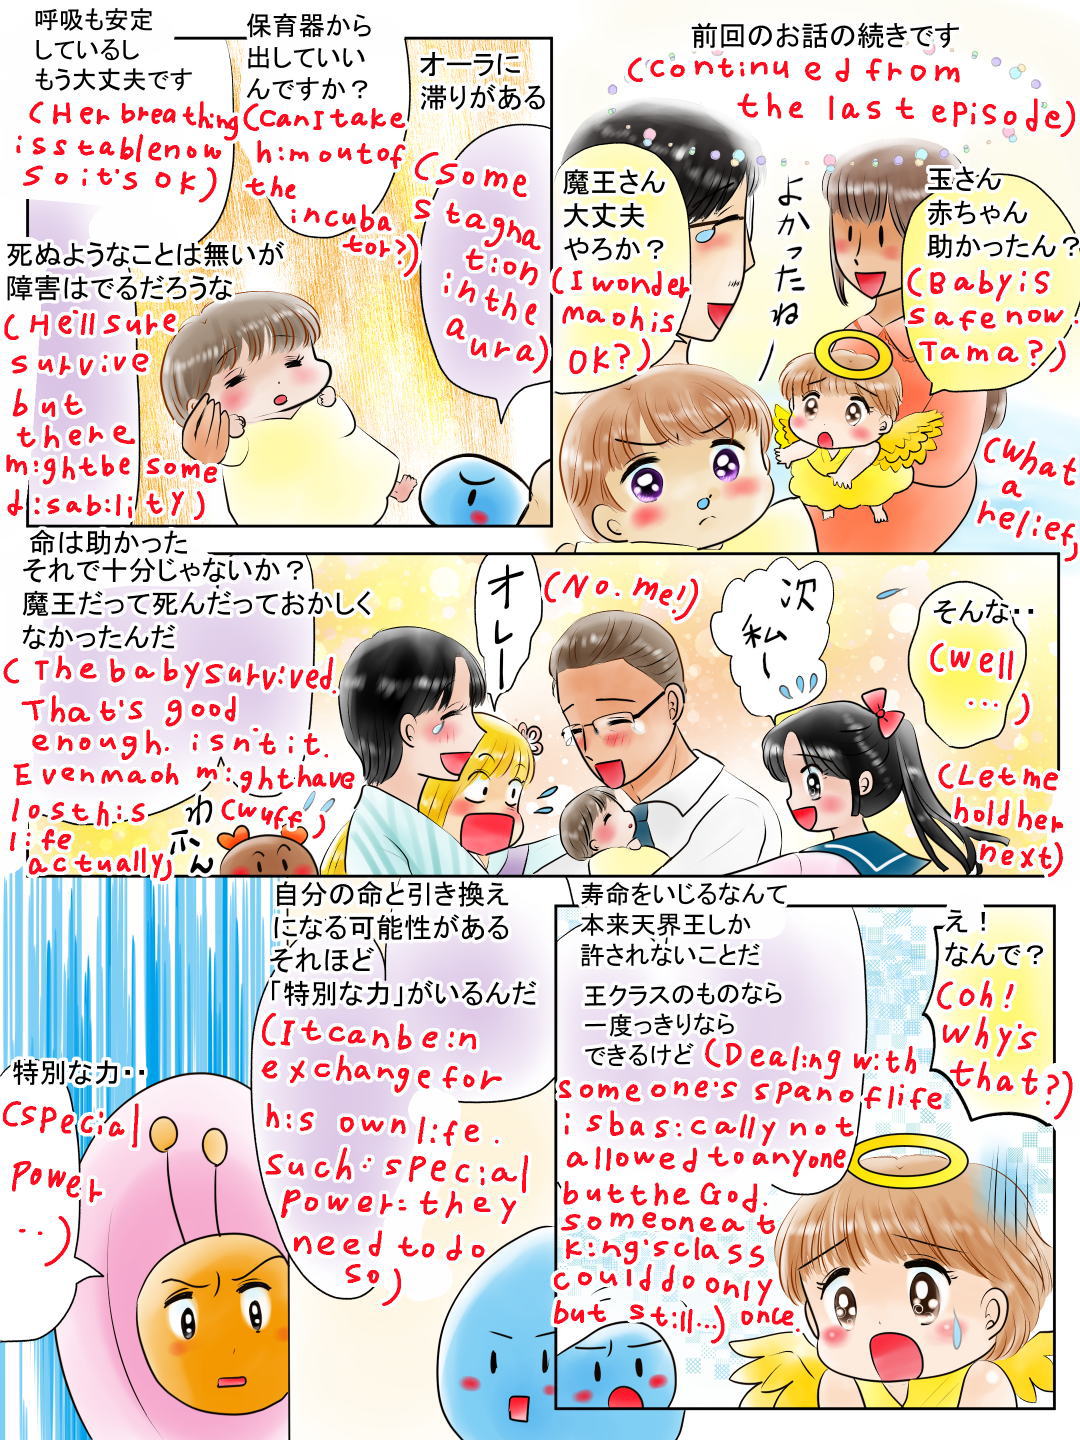 前回のお話の続きです
(continued from
the last episode)
玉さん
赤ちゃん
助かったん？
(Baby is
safe now.
Tama?)
よかったね
(What
a
relief,
魔王さん
大丈夫
やろか？
(I wonder
maoh is
OK?)
オーラに
滞りがある
(Some
stagna
tion
in the
aura)
保育器から
出していい
んですか？
(Can I take
him out of
the
incuba
tor?)
呼吸も安定
しているし
もう大丈夫です
(Her breathing
is stable now
So it's OK)
死ぬようなことは無いが
障害はでるだろうな
(He'll sure
survive
but
there
might be some
disability)
そんな‥
(well
...)
次
私〜
(Let me
hold her
next)
オレー
(No. me!)
命は助かった
それで十分じゃないか？
魔王だって死んだっておかしく
なかったんだ
(The baby survived.
That's good
enough. isn't it.
Even maoh might have
lost his
life
actually,
わふん
(wuff)
え！
なんで？
(Oh!
Why's
that?)
寿命をいじるなんて
本来天界王しか
許されないことだ
王クラスのものなら
一度っきりなら
できるけど
(Dealing with
someone's span of life
is basically not
allowed to anyone
but the God.
someone at
king's class
could do only
once.
but still...)
自分の命と引き換え
になる可能性がある
それほど
「特別な力」がいるんだ
(It can be in
exchange for
his own life.
Such: special
power: they
need to do
so)
特別な力‥
(special
power
..)